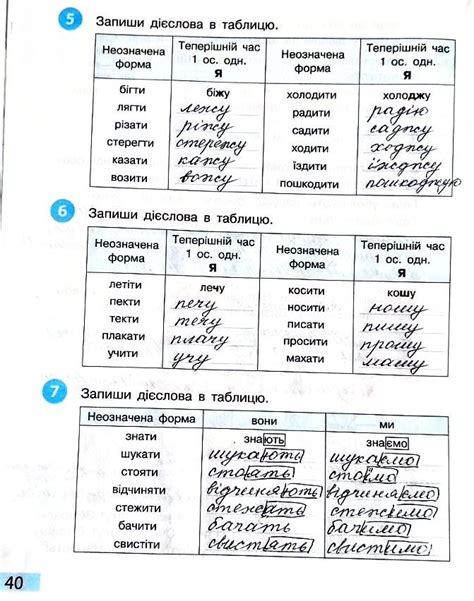 5 Запиши дієслова в таблицю.
Неозначена форма | Теперішній час 1 ос. одн. Я | Неозначена форма | Теперішній час 1 ос. одн. Я
бігти | біжу | холодити | холоджу
лягти | лежу | радити | радію
різати | ріжу | садити | саджу
стерегти | стережу | ходити | ходжу
казати | кажу | їздити | їжджу
возити | вожу | пошкодити | пошкоджую
6 Запиши дієслова в таблицю.
Неозначена форма | Теперішній час 1 ос. одн. Я | Неозначена форма | Теперішній час 1 ос. одн. Я
летіти | лечу | косити | кошу
пекти | печу | носити | ношу
текти | течу | писати | пишу
плакати | плачу | просити | прошу
учити | учу | махати | машу
7 Запиши дієслова в таблицю.
Неозначена форма | вони | ми
знати | знають | знаємо
шукати | шукають | шукаємо
стояти | стоять | стоїмо
відчиняти | відчиняють | відчиняємо
стежити | стежать | стежимо
бачити | бачать | бачимо
свистіти | свистять | свистимо
40